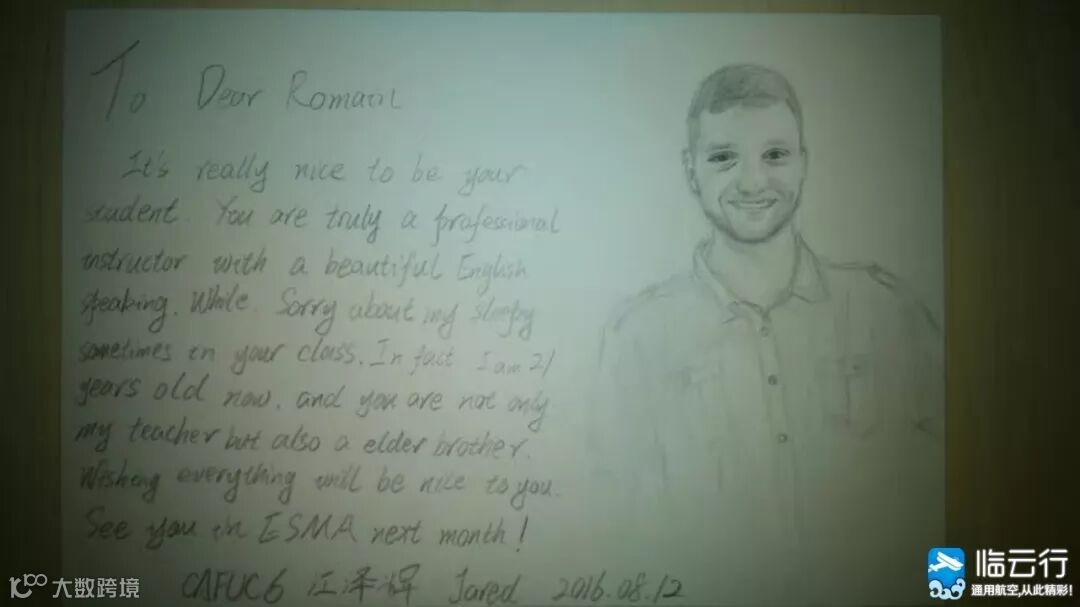 To Dear Romain
It's really nice to be your
student. You are truly a professional
instructor with a beautiful English
speaking. While. Sorry about my sleepy
sometimes in your class. In fact I am 21
years old now. and you are not only
my teacher but also a elder brother.
Wisheng everything will be nice to you.
See you in ESMA next month!
CAFUC6 江泽辉 Jared 2016.08.12
大数跨境
临云行
通用航空,从此精彩!